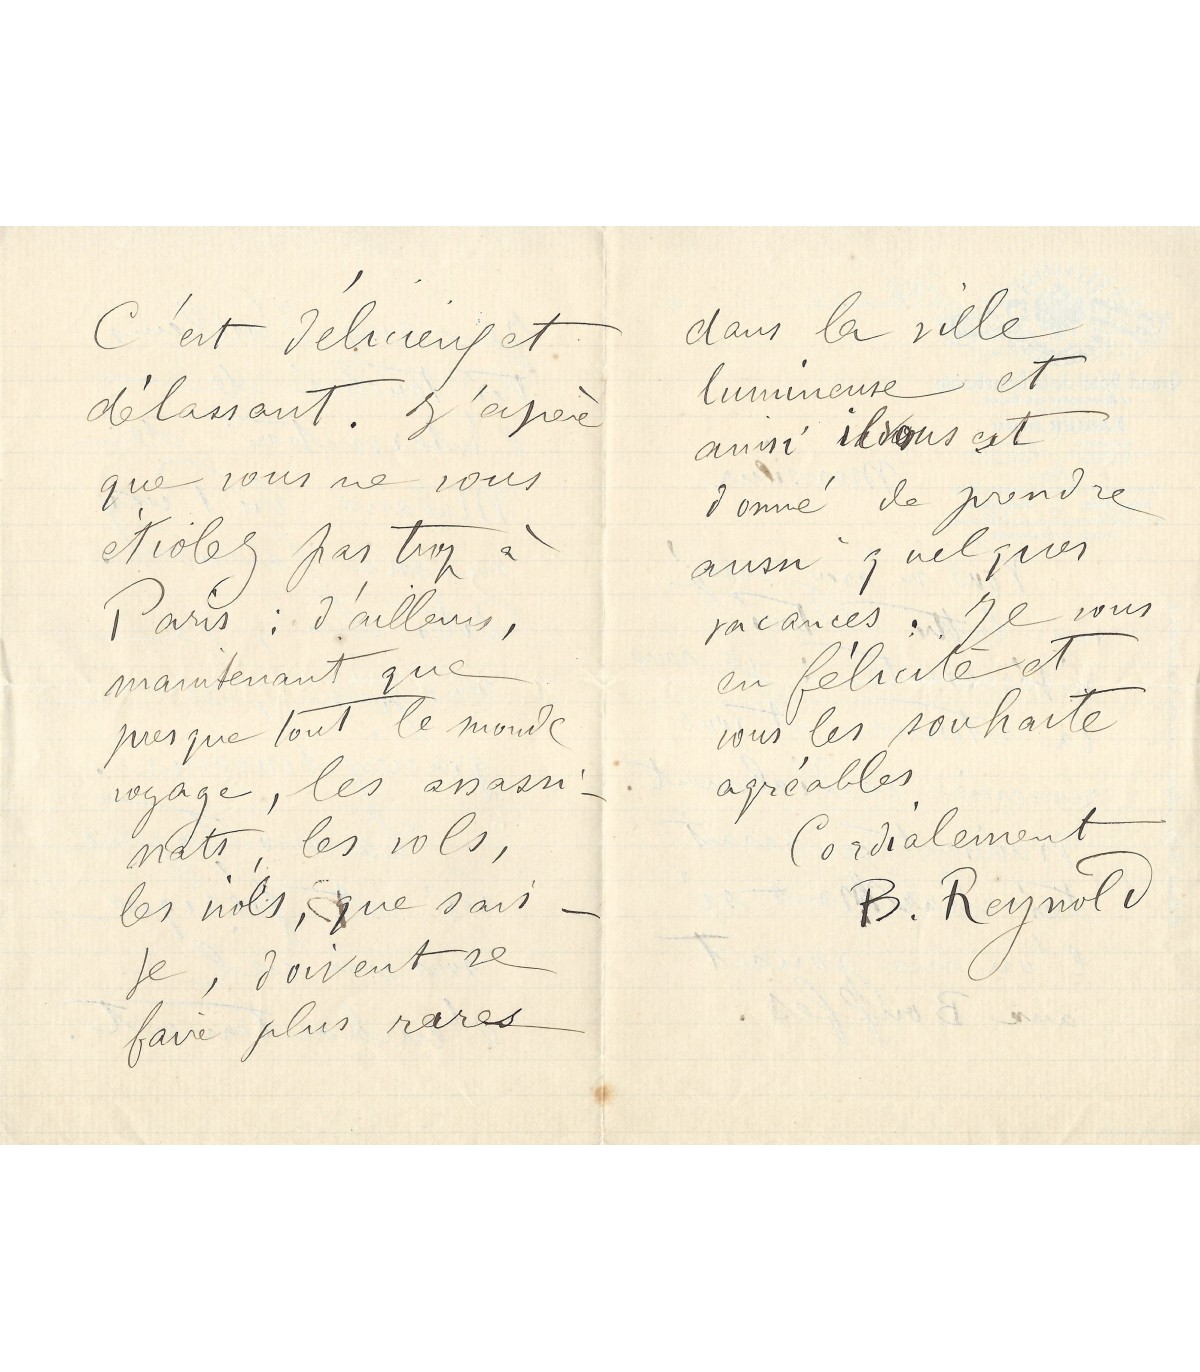 C'est délicieux et
délassant. J'espère
que vous ne vous
étiolez pas trop à
Paris ; d'ailleurs,
maintenant que
presque tout le monde
voyage, les assassi-
nats, les vols,
les viols, que sais-
je, doivent se
faire plus rares
dans la ville
lumineuse et
ainsi il vous est
donné de prendre
aussi quelques
vacances. Je vous
en félicite et
vous les souhaite
agréables
Cordialement
B. Reynold